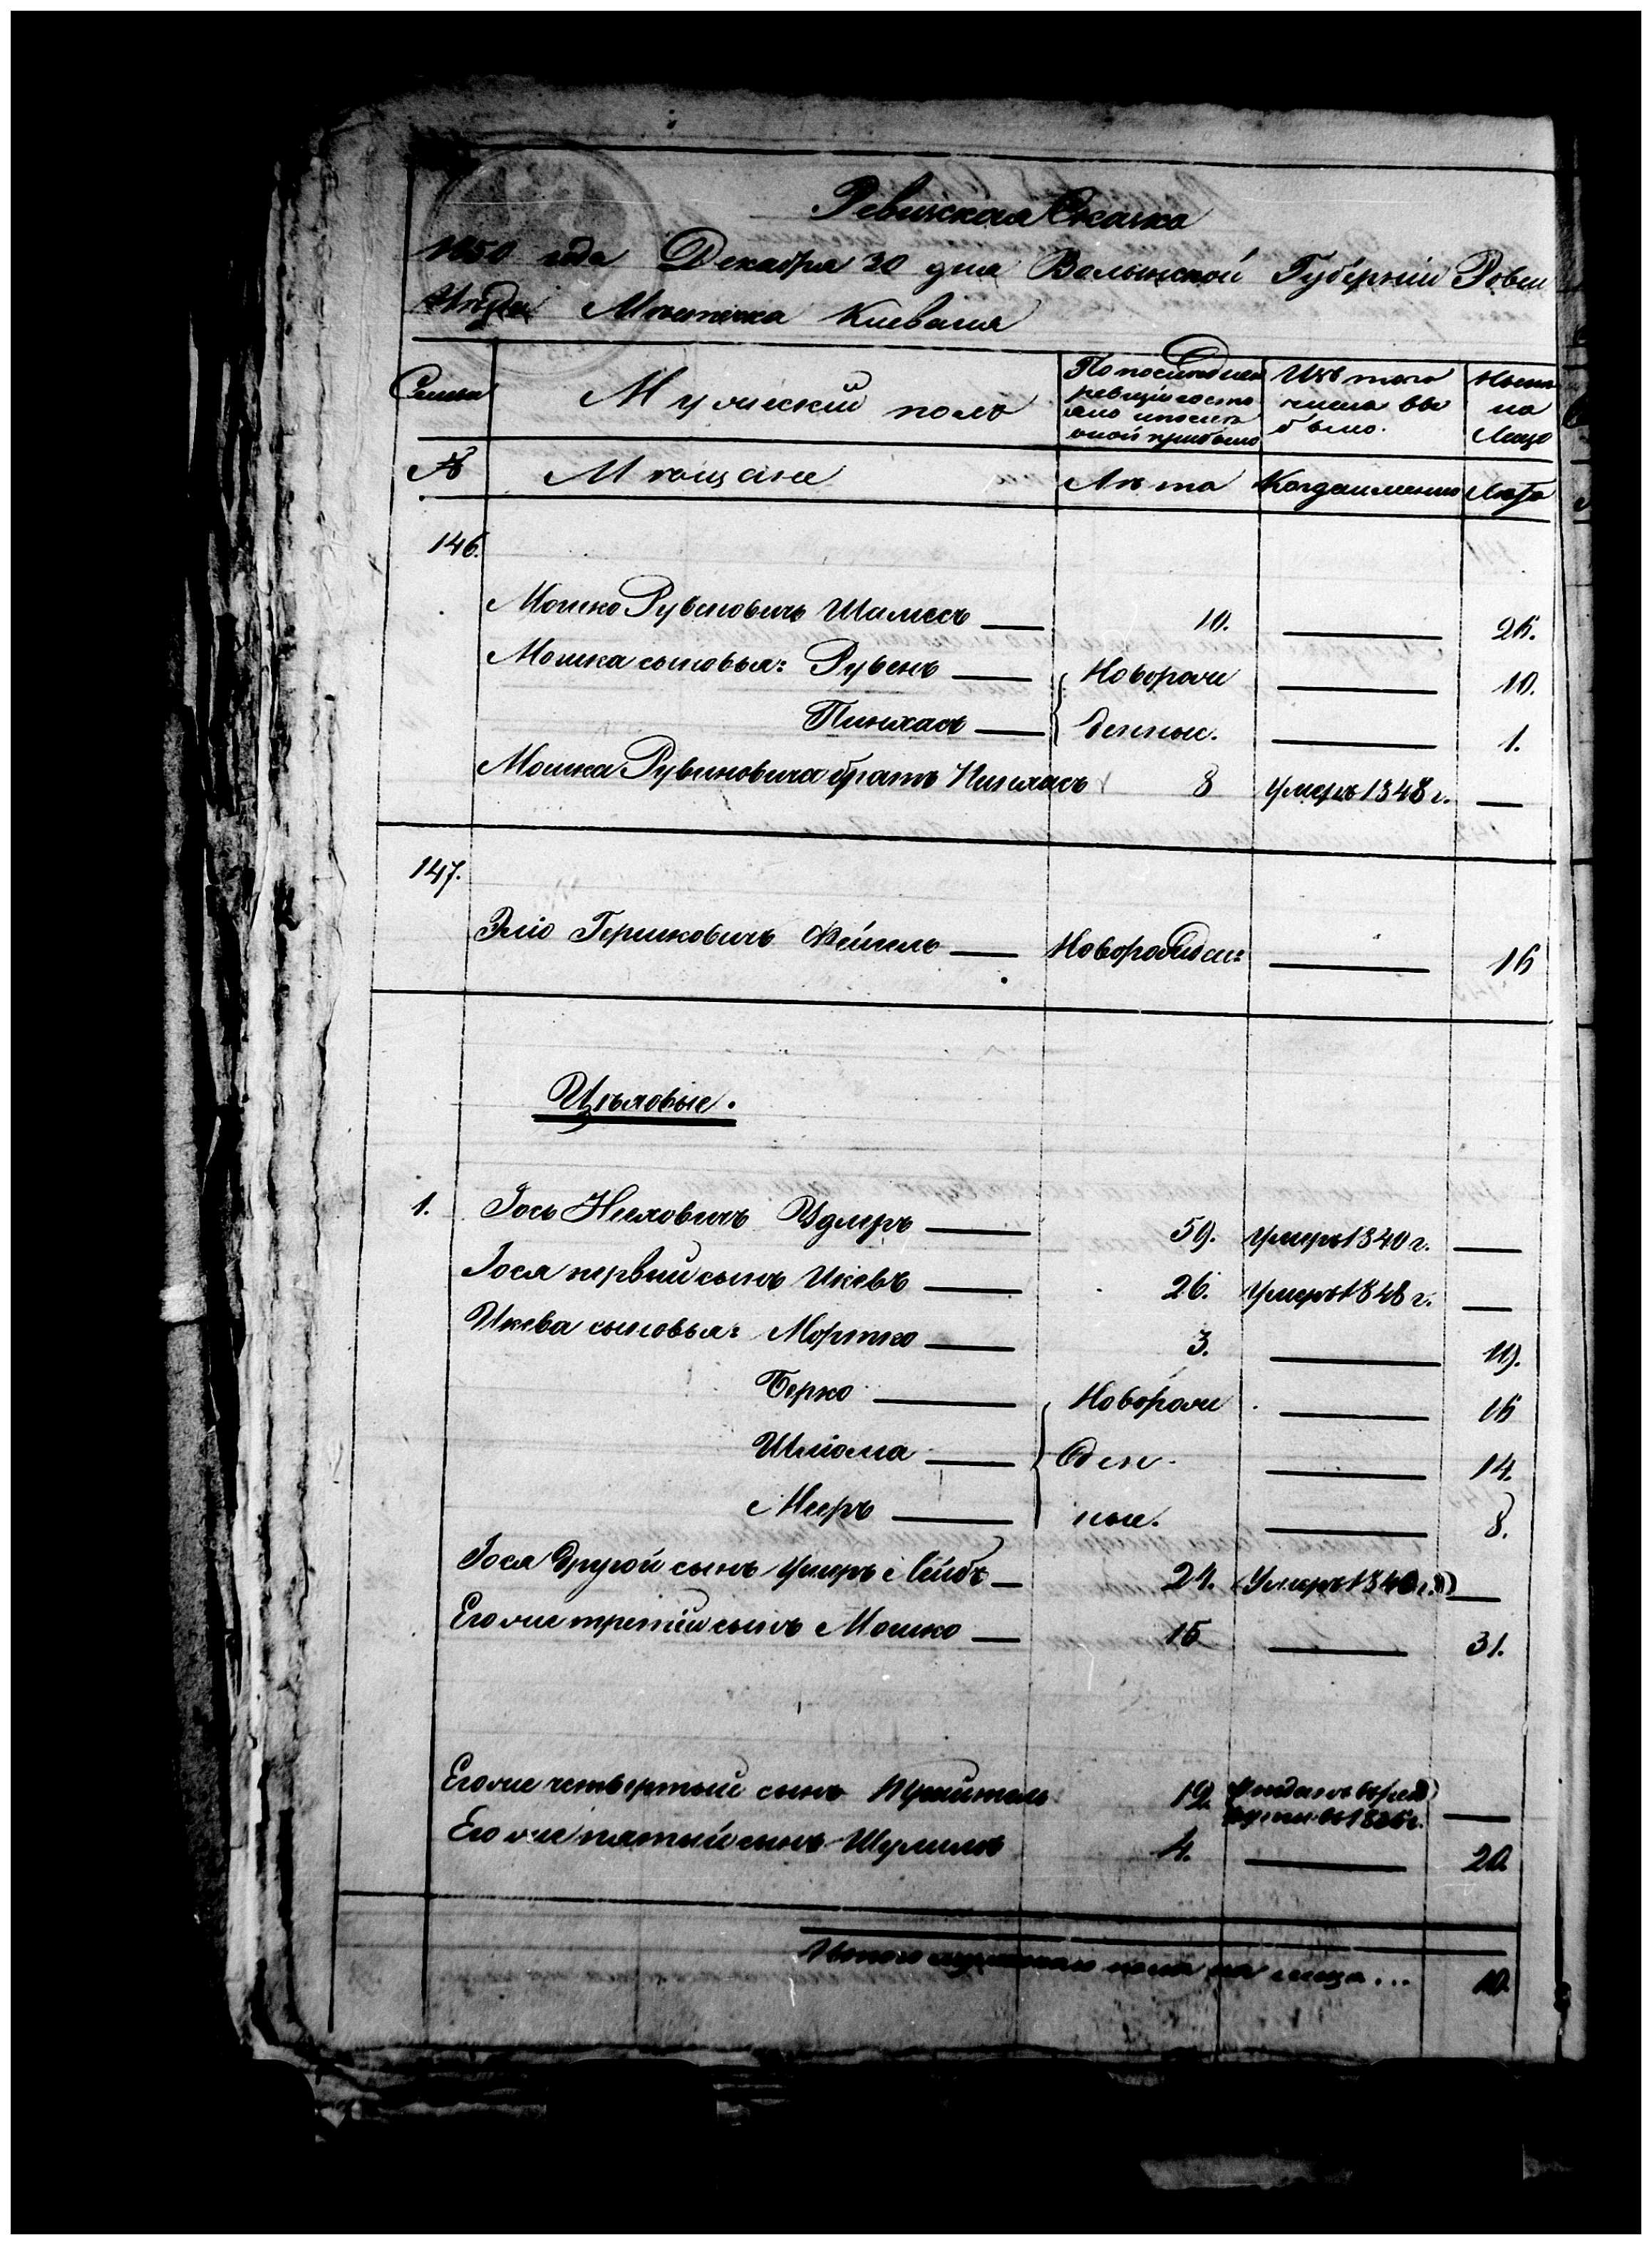 Ревизская Сказка
1850 года Декабря 30 дня Волынской Губерніи Ровен
Уѣзда Мѣстечка Клеваня
Семьи
Мужеский полъ
По последней
ревизіи состо
яло и после
оной прибыло
Изъ того
числа вы
было.
Ныне
на
лицо
№
Мѣщане
Лѣта
Когда именно
Лѣта
146.
Мошко Рувиновичъ Шамесъ — 10. — 26.
Мошка сыновья: Рувенъ — Новорож — 10.
Пинхасъ — денные. — 1.
Мошка Рувиновича братъ Пинхасъ 8 умеръ 1848 г. —
147.
Элio Гершковичъ Фейгель — Новорожден: — 16
Цѣховые.
1. Іось Хиелховичъ Удлеръ — 59. умеръ 1840 г. —
Іося первый сынъ Икевъ — 26. умеръ 1848 г. —
Икева сыновья: Мортко — 3. — 19.
Берко — Новорож — 16
Шліома — ден — 14.
Мееръ — ные. — 8.
Іося другой сынъ Лейбъ — 21. умеръ 1840 г. —
Его же третій сынъ Мошко — 15 — 31.
Его же четвертый сынъ 12. —
Его же пятый сынъ Шулимъ 4. — 20.
Итого мужескаго пола на лицо... 10.